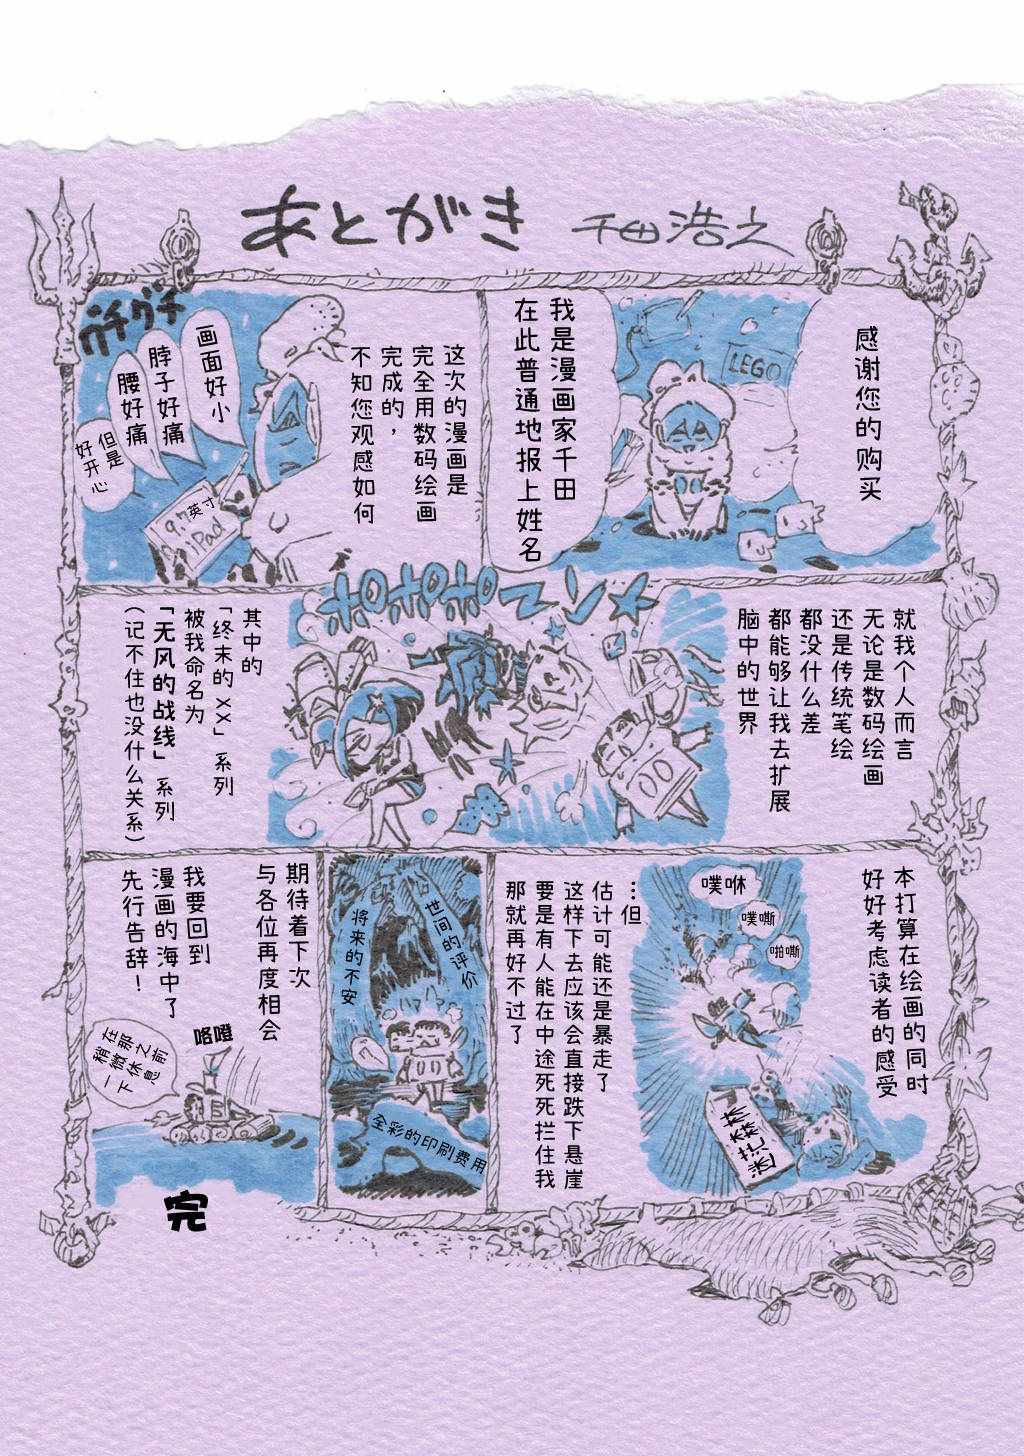 あとがき
千田浩之
感谢您的购买
LEGO
我是漫画家千田
在此普通地报上姓名
这次的漫画是
完全用数码绘画
完成的，
不知您观感如何
グチグチ
画面好小
脖子好痛
腰好痛
但是
好开心
9.7英寸
iPad
就我个人而言
无论是数码绘画
还是传统笔绘
都没什么差
都能够让我去扩展
脑中的世界
ホロホロホロマン★
其中的
「终末的XX」系列
被我命名为
「无风的战线」系列
（记不住也没什么关系）
本打算在绘画的同时
好好考虑读者的感受
噗咻
噗嘶
啪嘶
…但
估计可能还是暴走了
这样下去应该会直接跌下悬崖
要是有人能在中途死死拦住我
那就再好不过了
世间的评价
将来的不安
全彩的印刷费用
期待着下次
与各位再度相会
我要回到
漫画的海中了
先行告辞！
咯噔
在那之前
稍微休息
一下
完